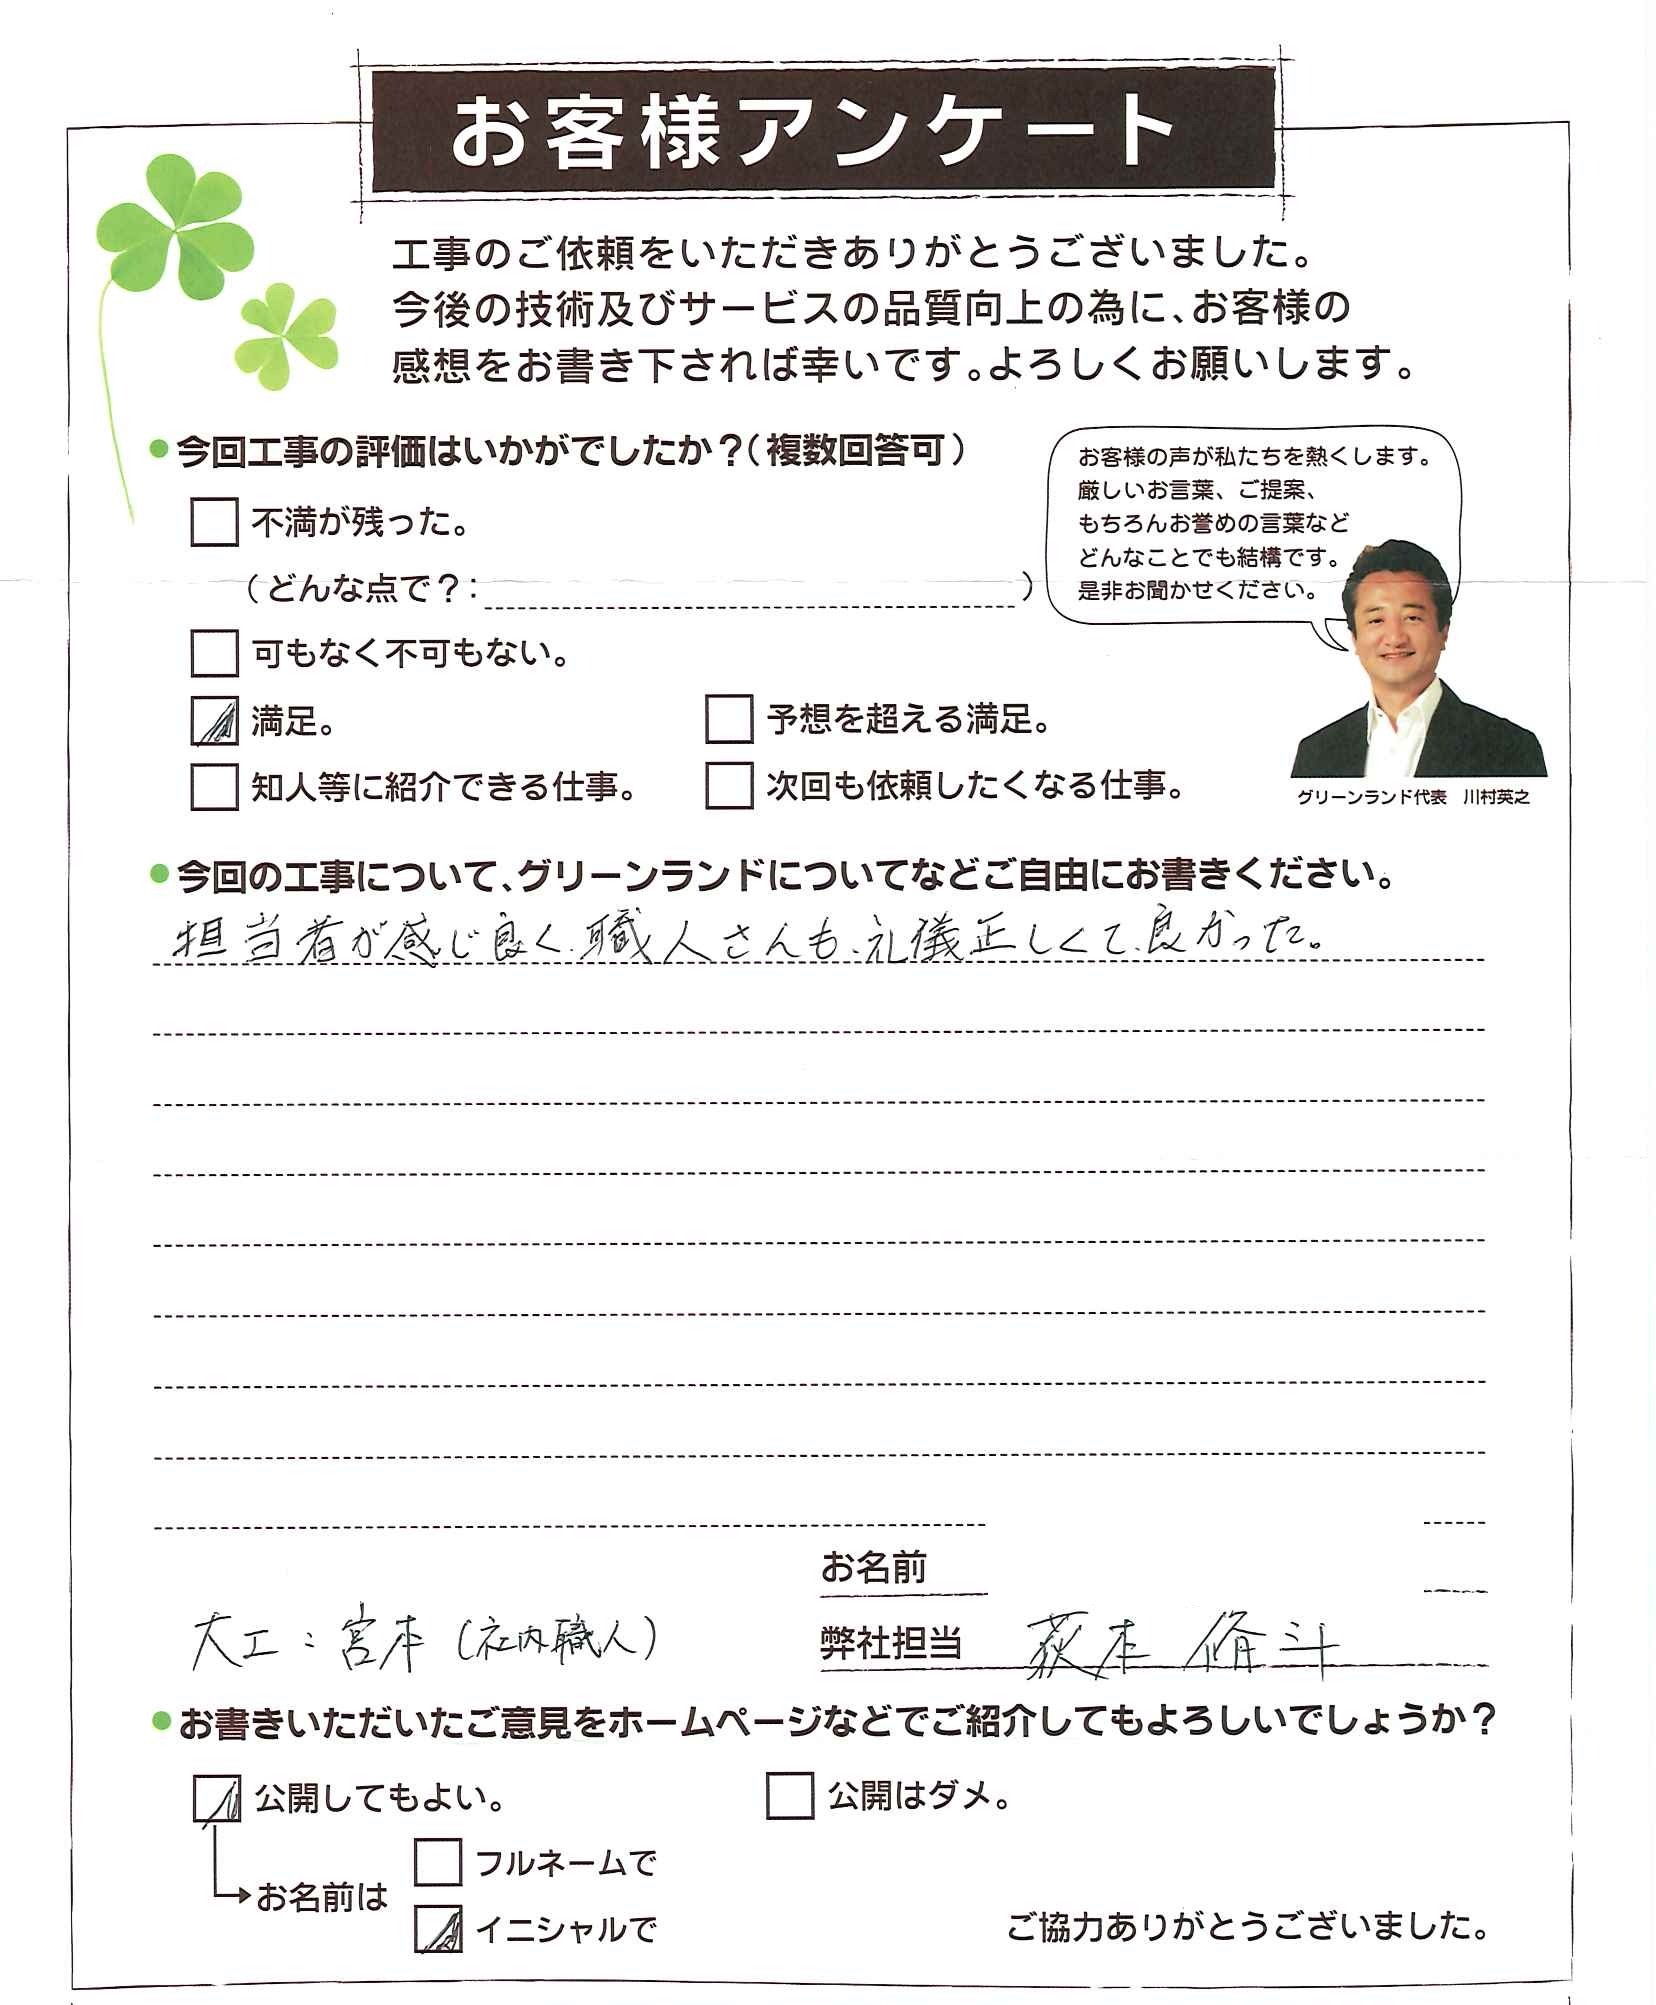 お客様アンケート
工事のご依頼をいただきありがとうございました。
今後の技術及びサービスの品質向上の為に、お客様の
感想をお書き下されば幸いです。よろしくお願いします。
●今回工事の評価はいかがでしたか？（複数回答可）
不満が残った。
（どんな点で？：　）
可もなく不可もない。
満足。
予想を超える満足。
知人等に紹介できる仕事。
次回も依頼したくなる仕事。
お客様の声が私たちを熱くします。
厳しいお言葉、ご提案、
もちろんお誉めの言葉など
どんなことでも結構です。
是非お聞かせください。
グリーンランド代表　川村英之
●今回の工事について、グリーンランドについてなどご自由にお書きください。
担当者が感じ良く、職人さんも、礼儀正しくて、良かった。
お名前
大工：宮本（社内職人）
弊社担当　荻本 脩斗
●お書きいただいたご意見をホームページなどでご紹介してもよろしいでしょうか？
公開してもよい。
公開はダメ。
お名前は
フルネームで
イニシャルで
ご協力ありがとうございました。